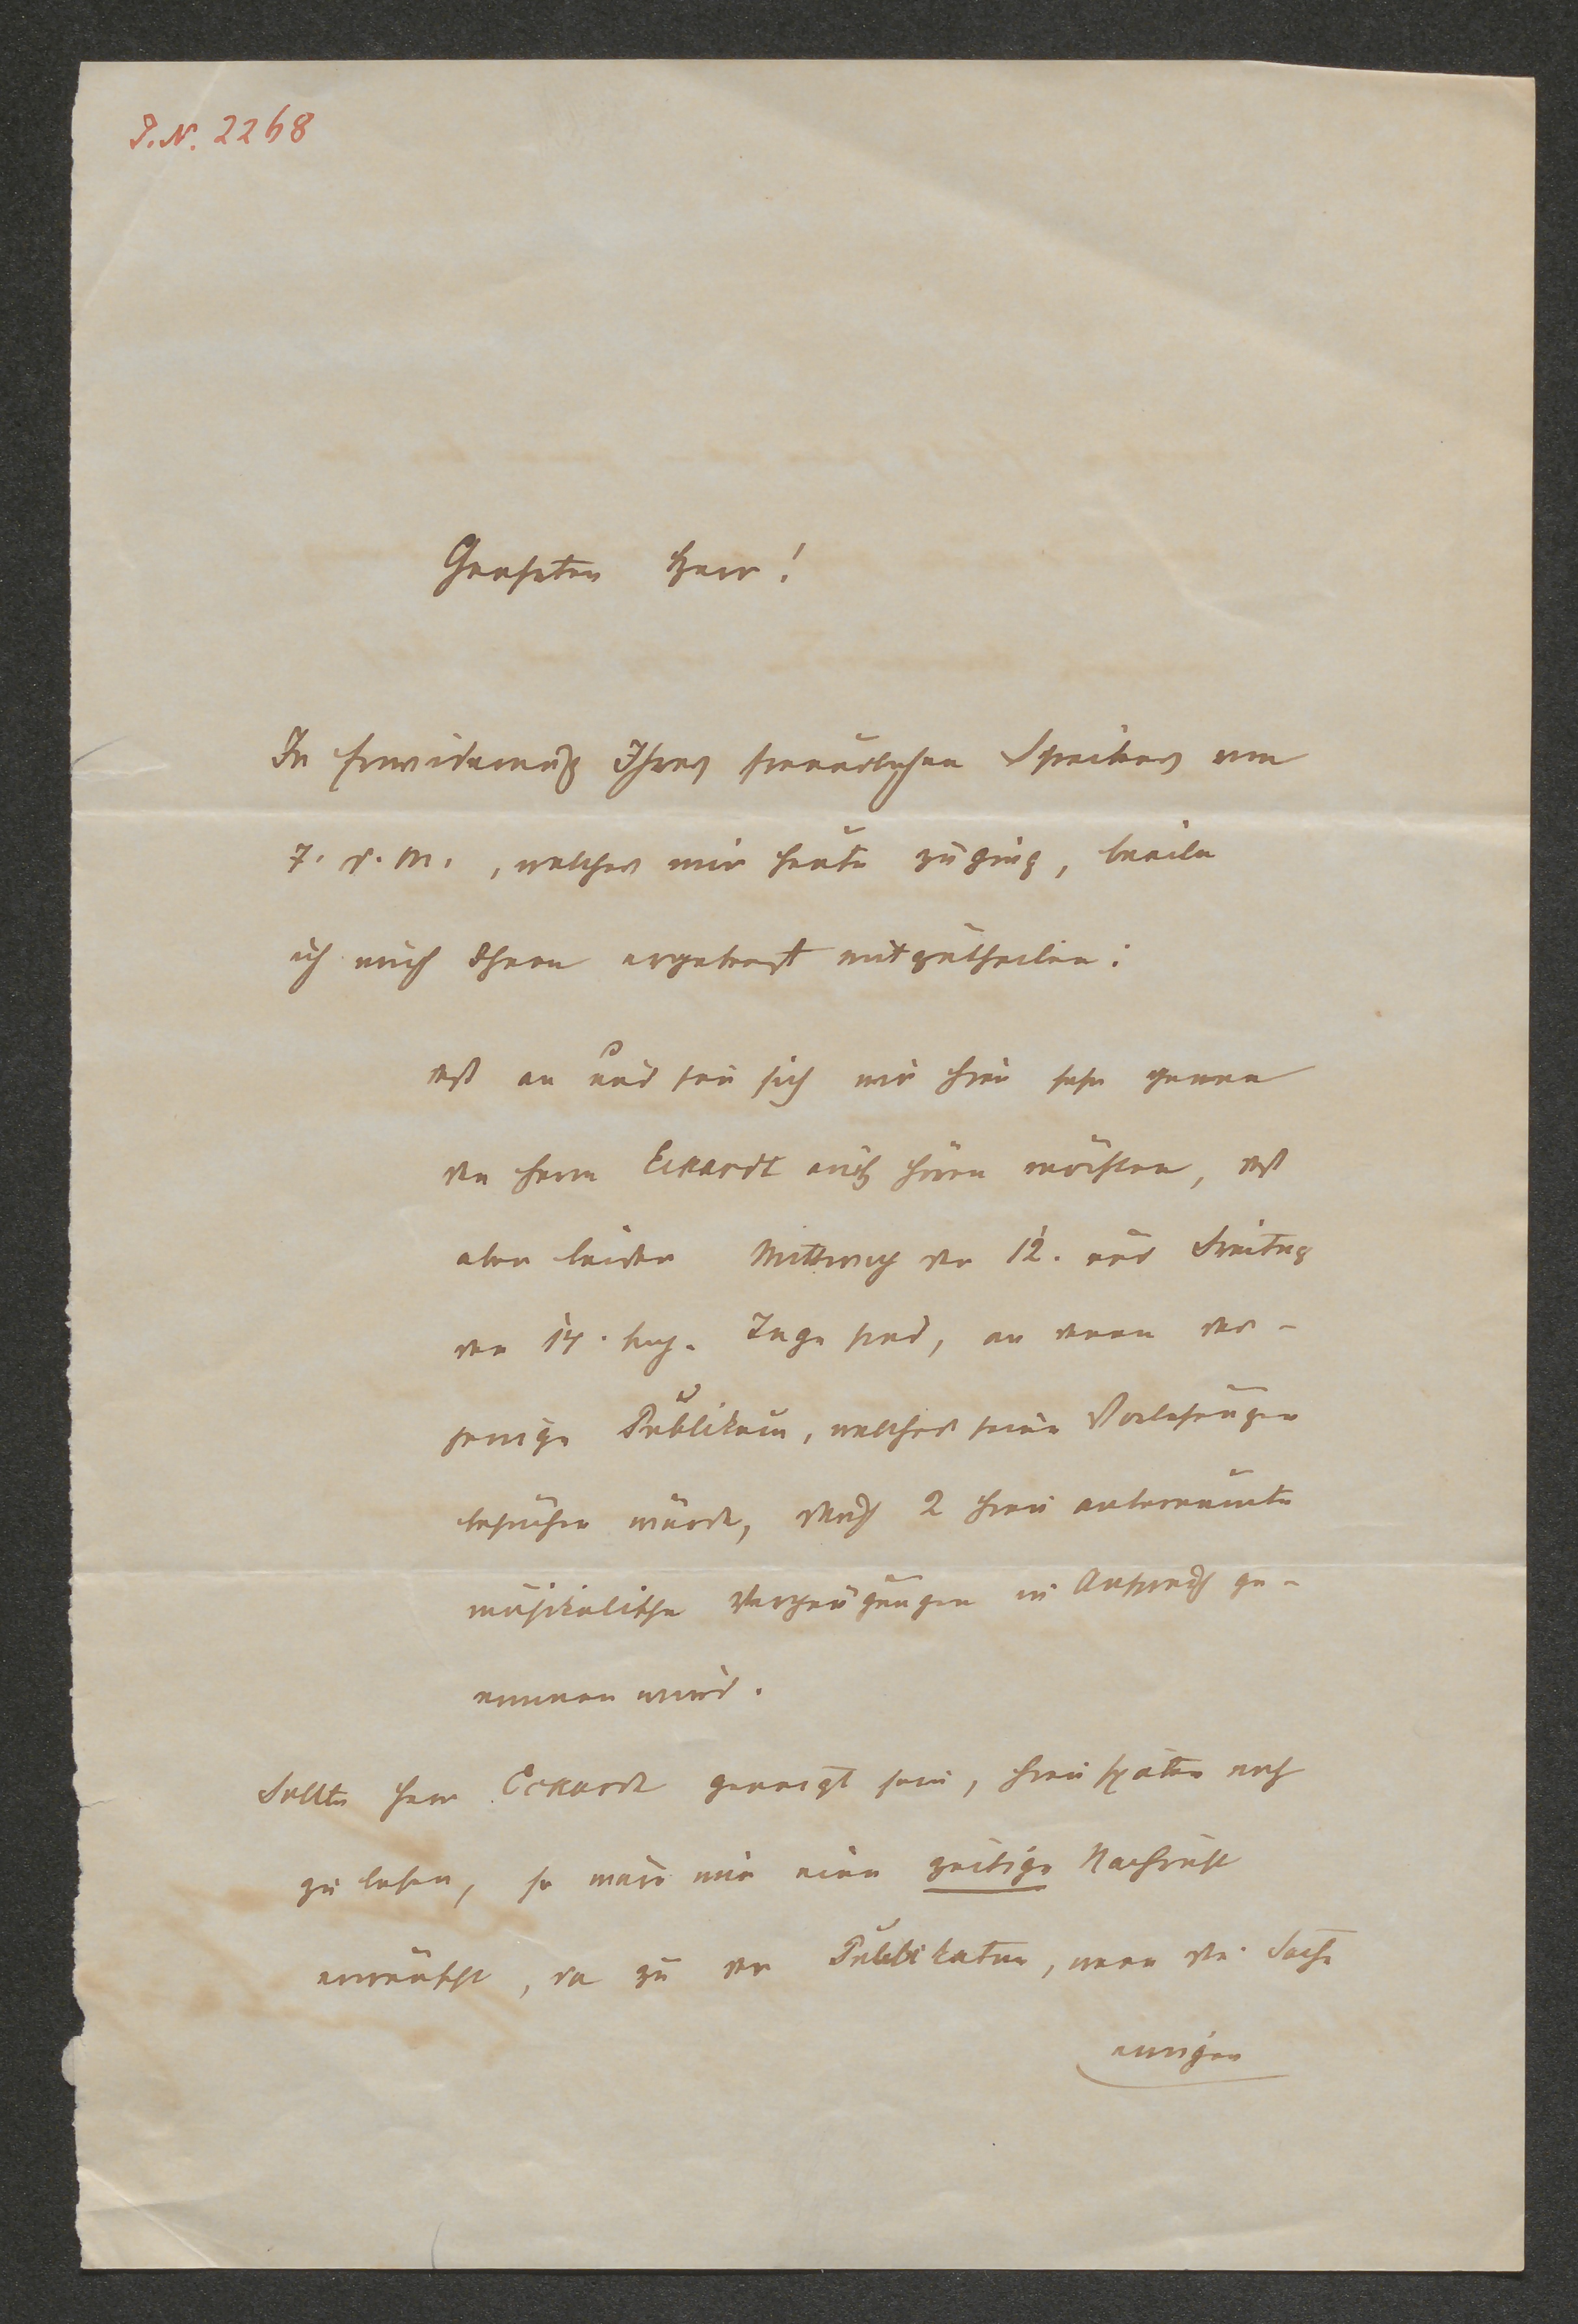 I.N. 2268
Geehrter Herr!
In Erwiderung Ihres freundlichen Schreibens vom
7. d. M., welches mir heute zuging, beeile
ich mich Ihnen ergebenst mitzutheilen:
daß an und für sich wir hier sehr gerne
den Herrn Eckardt auch hören möchten, daß
aber leider Mittwoch der 12. und Freitag
der 14. Tage sind, an denen das-
jenige Publikum, welches seine Vorlesungen
besuchen würde, durch 2 hier anberaumte
musikalische Vergnügungen in Anspruch ge-
nommen wird.
Sollte Herr Eckardt geneigt sein, hier später noch
zu lesen, so wäre mir eine zeitige Nachricht
erwünscht, da zu der Publikation, wenn die Sache
einigen